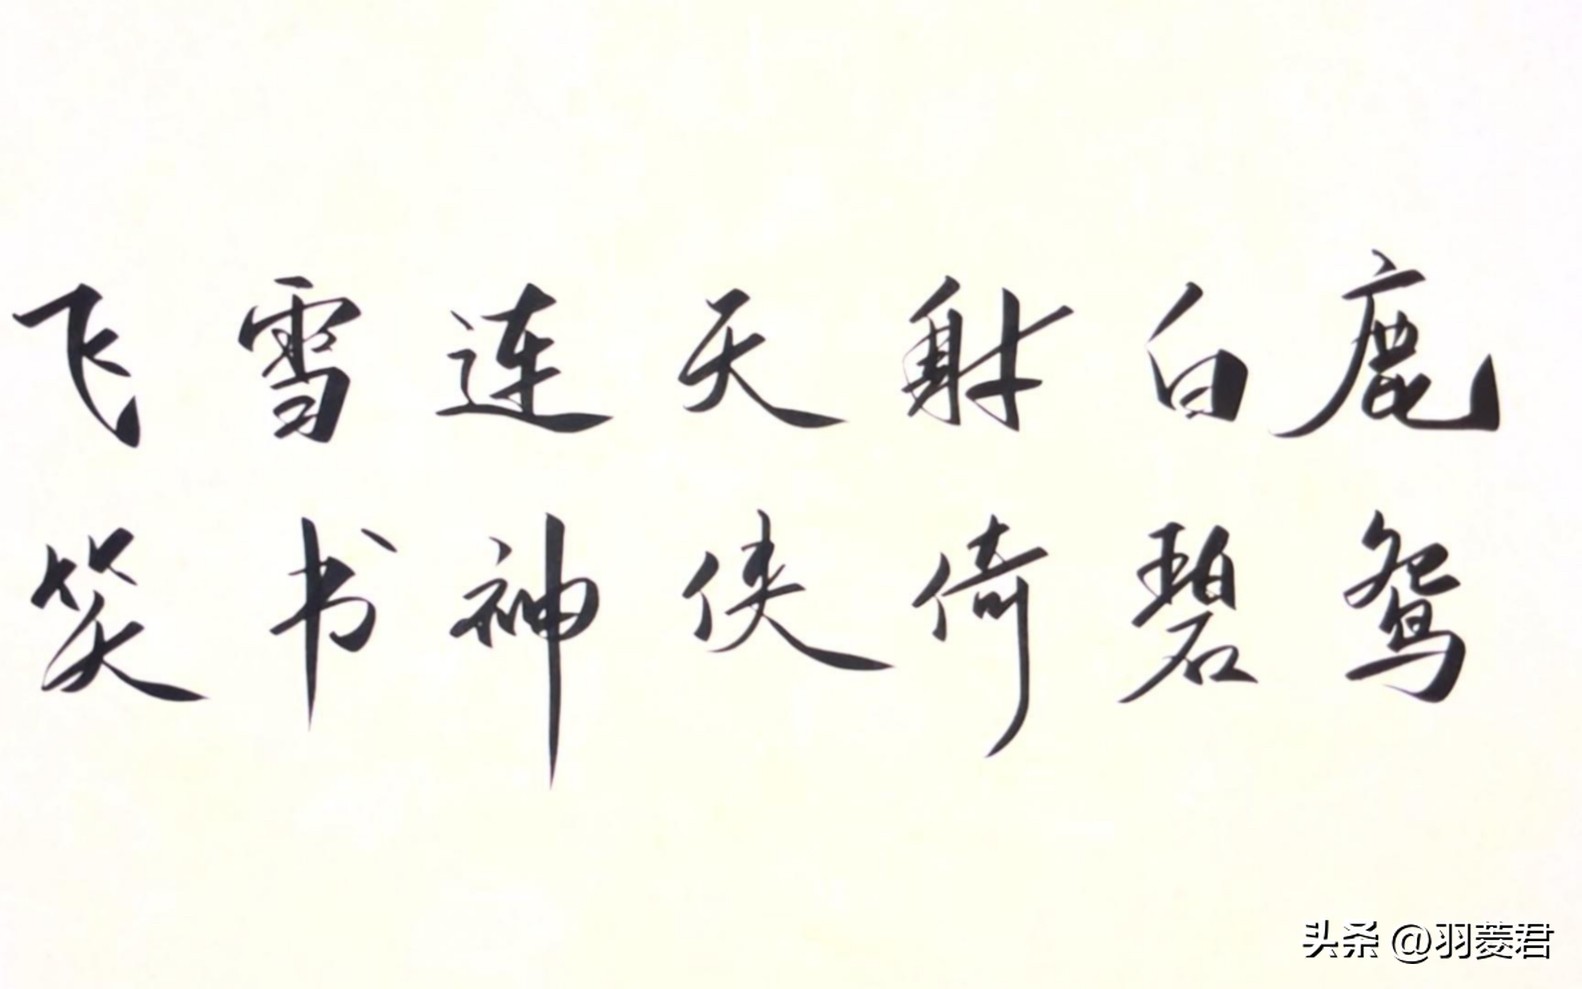 飞雪连天射白鹿
笑书神侠倚碧鸳
头条 @羽菱君